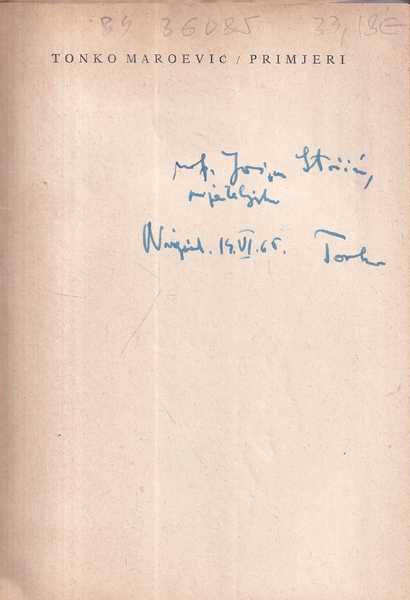 89 36085 33,18€
TONKO MAROEVIC / PRIMJERI
prof. Josipu Stošiću,
prijateljski
19.VI.65. Tonko